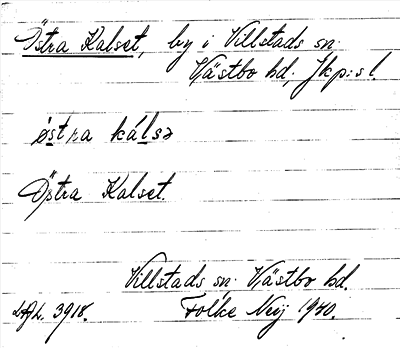 Östra Kalset, by i Villstads sn.
Västbo hd, Jkp:s l.
östra kálsə
Östra Kalset.
Villstads sn. Västbo hd.
LAL. 3918. Folke Neij 1940.